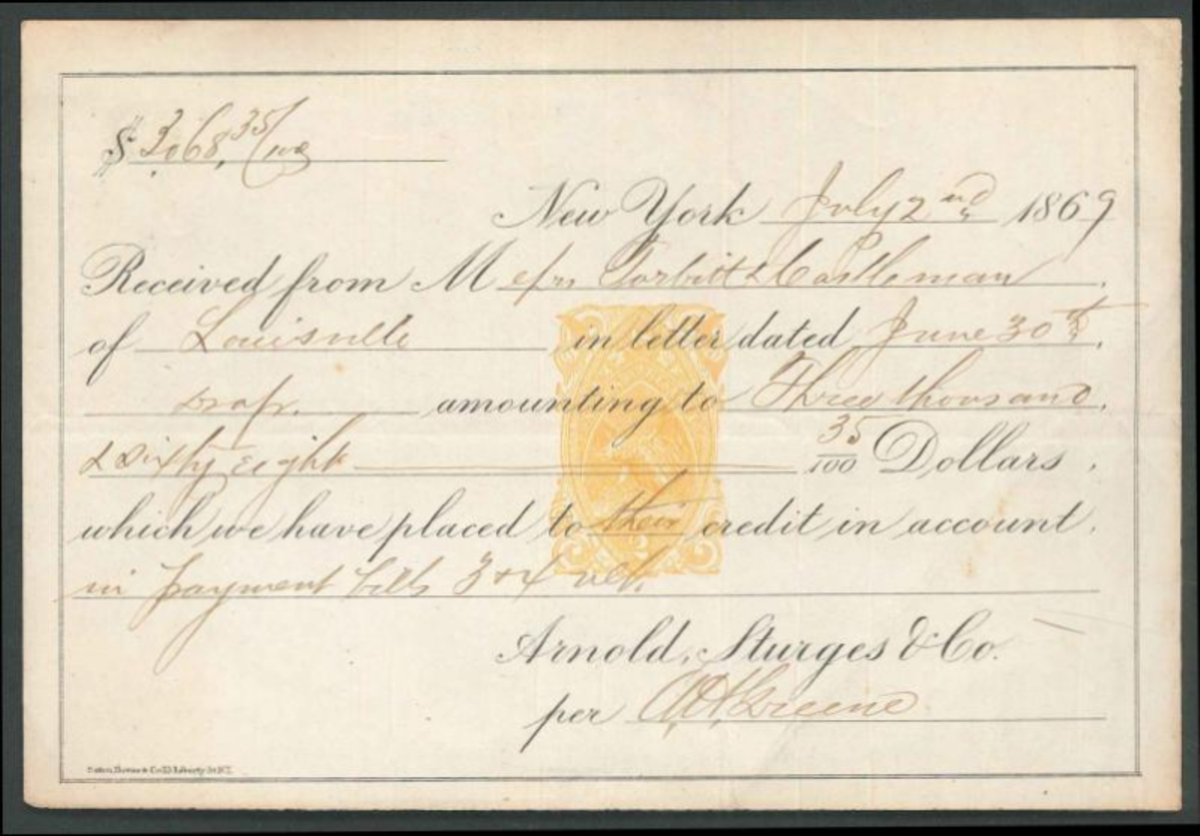 $ 3,068, 35/100
New York July 2nd 1869
Received from Messrs Torbitt & Castleman
of Louisville in letter dated June 30th,
Draft. amounting to Three thousand,
& Sixty Eight 35/100 Dollars,
which we have placed to their credit in account.
in payment bills 3 & 4
Arnold, Sturges & Co.
per Greene